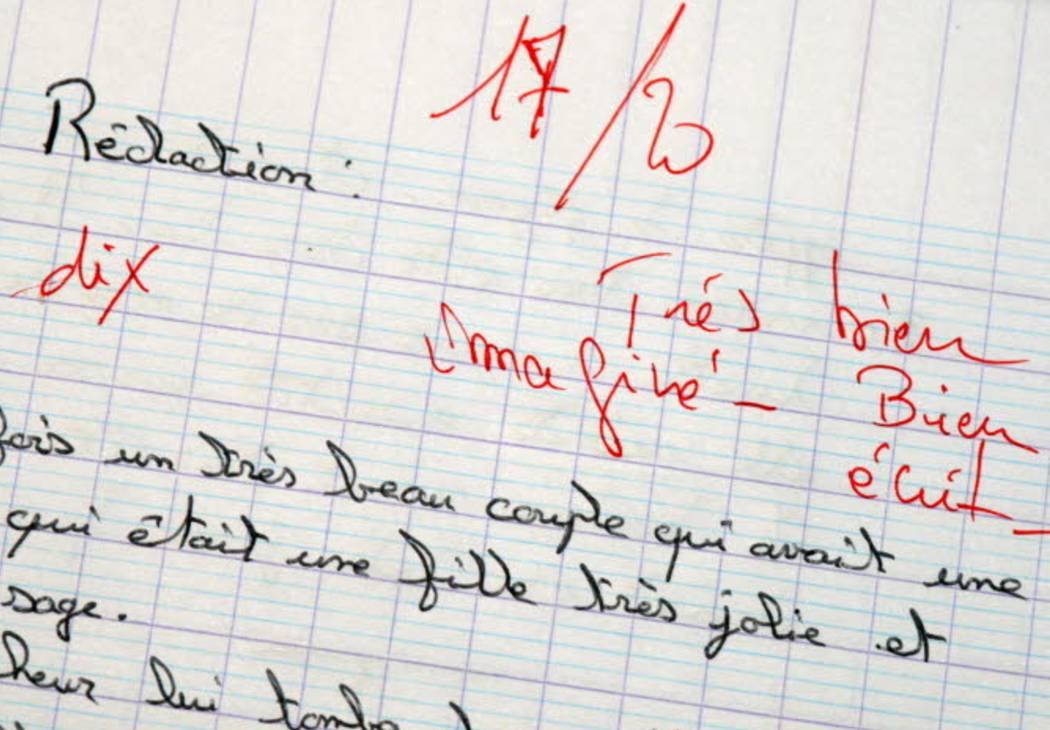 17/20
Rédaction :
dix
Très bien
imaginé - Bien
écrit -
fois un très beau couple qui avait une
qui était une fille très jolie et
sage.
heur lui tomba